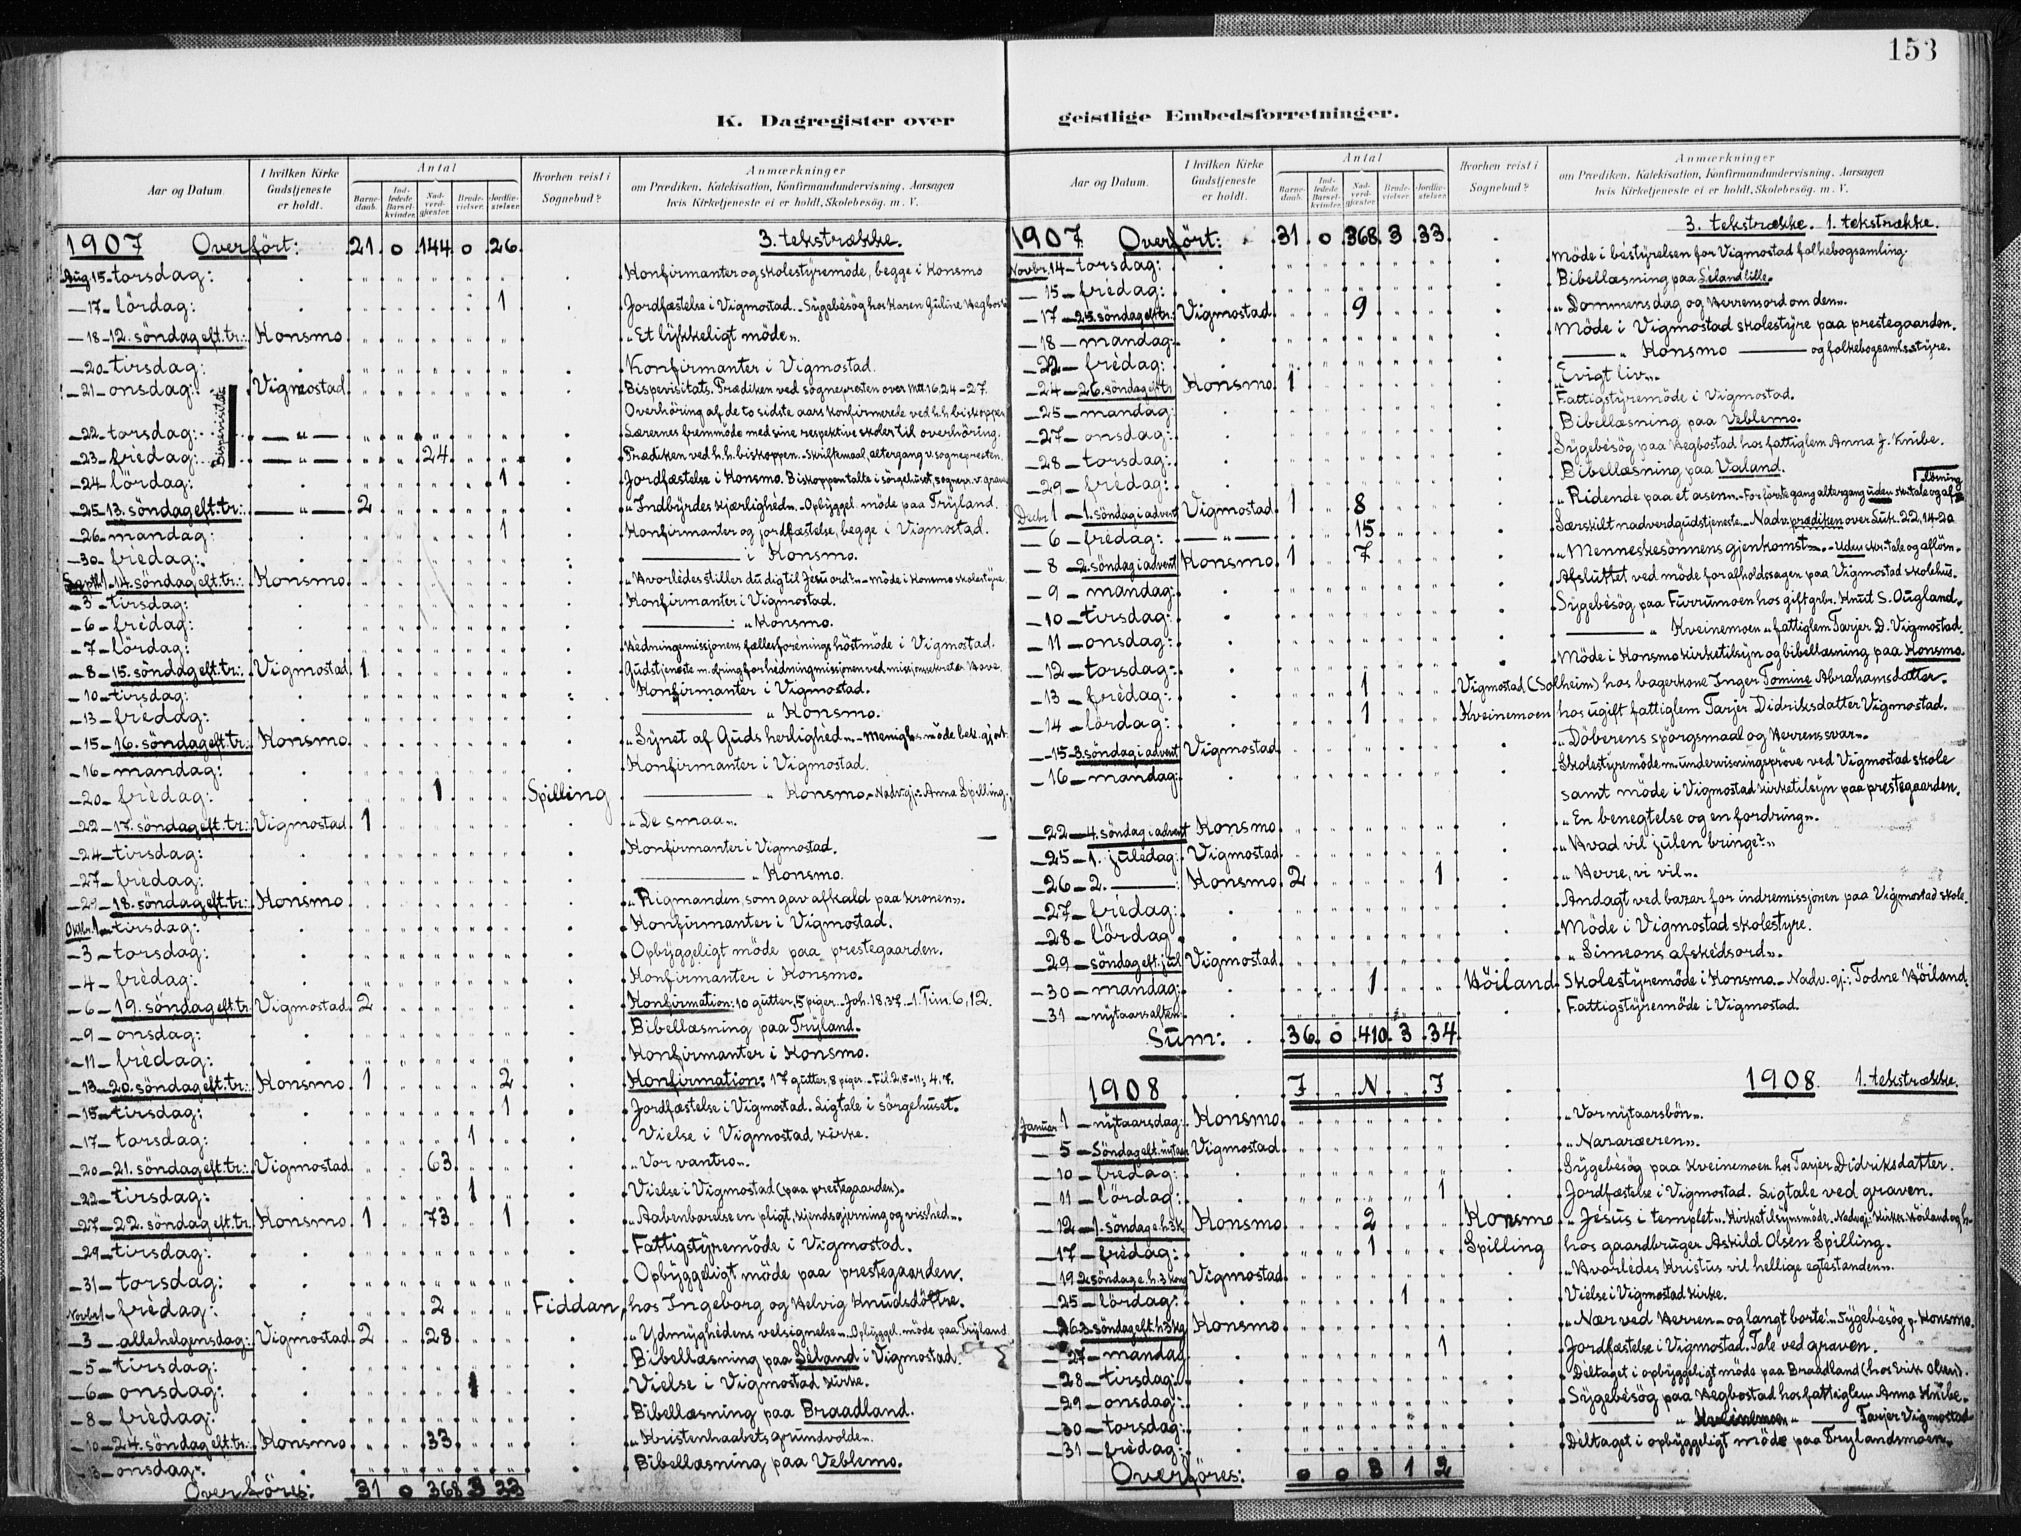 153
K. Dagregister over
Aar og Datum.
I hvilken Kirke Gudstjeneste er holdt.
Antal
Barne-daab.
Ind-ledede Barsel-kvinder.
Nad-verd-gjæster.
Brude-vielser.
Jordfæ-stelser.
Hvorhen reist i Sognebud?
Anmærkninger
om Prædiken, Katekisation, Konfirmandundervisning, Aarsagen
hvis Kirketjeneste ei er holdt, Skolebesøg, m. V.
1907 Overført: 21 0 144 0 26 3. tekstrække.
Aug. 15 - torsdag: Konfirmanter og skolestyremöde, begge i Konsmo
- 17 - lördag: 1 Jordfæstelse i Vigmostad. - Sygebesög hos Karen Guline Hegbost
- 18 - 12. söndag eft. tr.: Konsmo „Et lykkeligt möde".
- 20 - tirsdag: Konfirmanter i Vigmostad.
- 21 - onsdag: Bispevisitats Vigmostad Bispevisitats. Prædiken ved sognepresten over Mtt 16.24-27.
Overhöring af de to sidste aars konfirmerede ved h.h. biskoppen
- 22 - torsdag: — „ — Lærernes fremmöde med sine respektive skoler til overhöring.
- 23 - fredag: — „ — 24 Prædiken ved h.h. biskoppen. - Skriftemaal, altergang v. sognepresten.
- 24 - lördag: 1 Jordfæstelse i Konsmo. Biskoppen talte i sörgehuset, sognepr. v. grave
- 25 - 13. söndag eft. tr.: — „ — 2 „Indbyrdes kjærlighed". - Opbyggel. möde paa Tryland.
- 26 - mandag: 1 Konfirmanter og jordfæstelse, begge i Vigmostad.
- 30 - fredag: ——— i Konsmo.
Septbr. 1 - 14. söndag eft. tr.: Konsmo „Hvorledes stiller du dig til Jesu ord?" - möde i Konsmo skolestyre.
- 3 - tirsdag: Konfirmanter i Vigmostad.
- 6 - fredag: ——— „ Konsmo.
- 7 - lördag: Hedningemissjonens fællesforenings höstmöde i Vigmostad.
- 8 - 15. söndag eft. tr.: Vigmostad 1 Gudstjeneste m. ofring for hedningmissionen ved missionssekretær Hove.
- 10 - tirsdag: Konfirmanter i Vigmostad.
- 13 - fredag: ——— „ Konsmo.
- 15 - 16. söndag eft. tr.: Konsmo „Synet af Guds herlighed". - Menighs. möde bek. gjort.
- 16 - mandag: Konfirmanter i Vigmostad.
- 20 - fredag: 1 Spilling ——— „ Konsmo. - Nadv. gj.: Anna Spilling.
- 22 - 17. söndag eft. tr.: Vigmostad 1 „De smaa".
- 24 - tirsdag: Konfirmanter i Vigmostad.
- 27 - fredag: ——— „ Konsmo.
- 29 - 18. söndag eft. tr.: Konsmo „Rigmanden, som gav afkald paa kronen".
Oktbr. 1 - tirsdag: Konfirmanter i Vigmostad.
- 3 - torsdag: Opbyggeligt möde paa prestegaarden.
- 4 - fredag: Konfirmanter i Konsmo.
- 6 - 19. söndag eft. tr. Vigmostad 2 Konfirmation: 10 gutter, 5 piger. - Joh. 18.37. - 1. Tim. 6,12.
- 9 - onsdag: Bibellæsning paa Tryland.
- 11 - fredag: Konfirmanter i Konsmo.
- 13 - 20. söndag eft. tr.: Konsmo 1 2 Konfirmation: 17 gutter, 8 piger. - Fil. 2,5-11; 4,7.
- 15 - tirsdag: 1 Jordfæstelse i Vigmostad. Ligtale i sörgehuset.
- 17 - torsdag: 1 Vielse i Vigmostad kirke.
- 20 - 21. söndag eft. tr.: Vigmostad 63 „Vor vantro".
- 22 - tirsdag: 1 Vielse i Vigmostad (paa prestegaarden).
- 27 - 22. söndag eft. tr. Konsmo 1 73 1 „Aabenbarelse en pligt, kjendsgjerning og visshed".
- 29 - tirsdag: Fattigstyremöde i Vigmostad.
- 31 - torsdag: Opbyggeligt möde paa prestegaarden.
Novbr. 1 - fredag: 2 Fiddan, hos Ingeborg og Helvig Knudsdöttre.
- 3 - allehelgensdag: Vigmostad 2 28 „Ydmyghedens velsignelse". - Opbyggel. möde paa Tryland.
- 5 - tirsdag: Bibellæsning paa Leland i Vigmostad.
- 6 - onsdag: 1 Vielse i Vigmostad kirke.
- 8 - fredag: Bibellæsning paa Braadland.
- 10 - 24. söndag eft. tr.: Konsmo 33 „Kristenhaabets grundvold".
- 13 - onsdag: Bibellæsning paa Veblemo.
Overföres: 31 0 368 3 33
geistlige Embedsforretninger.
Aar og Datum.
I hvilken Kirke Gudstjeneste er holdt.
Antal
Barne-daab.
Ind-ledede Barsel-kvinder.
Nad-verd-gjæster.
Brude-vielser.
Jordfæ-stelser.
Hvorhen reist i Sognebud?
Anmærkninger
om Prædiken, Katekisation, Konfirmandundervisning, Aarsagen
hvis Kirketjeneste ei er holdt, Skolebesög, m. V.
3. tekstrække. 1. tekstrække.
1907 Overfört: 31 0 368 3 33
Novbr. 14 - torsdag: Möde i bestyrelsen for Vigmostad folkebogsamling.
- 15 - fredag: Bibellæsning paa Leland lille.
- 17 - 25. söndag eft. tr: Vigmostad 9 „Dommens dag og Herrens ord om den".
- 18 - mandag: Möde i Vigmostad skolestyre paa prestegaarden.
- 22 - fredag: ——— „ Konsmo ——— og folkebogsaml.s styre.
- 24 - 26. söndag eft. tr. Konsmo 1 „Evigt liv".
- 25 - mandag: Fattigstyremöde i Vigmostad.
- 27 - onsdag: Bibellæsning paa Veblemo.
- 28 - torsdag: Sygebesög paa Hegbostad hos fattiglem Anna J. Knibe.
- 29 - fredag: Bibellæsning paa Valand.
Decbr. 1 - 1. söndag i advent Vigmostad 1 8 „Ridende paa et asen". - For förste gang altergang uden skr. tale og aflösning
- 6 - fredag: — „ — 15 Særskilt nadverdgudstjeneste. - Nadv. prædiken over Luk. 22,14-20
- 8 - 2. söndag i advent Konsmo 1 7 „Menneskesönnens gjenkomst". - Uden skr. tale og aflösn.
- 9 - mandag: Afsluttet ved möde for afholdssagen paa Vigmostad skolehus.
- 10 - tirsdag: Sygebesög paa Furrumoen hos gift grbr. Knut S. Ougland.
- 11 - onsdag: ——— „ Kveinemoen „ fattiglem Tarjer D. Vigmostad.
- 12 - torsdag: Möde i Konsmo kirketilsyn og bibellæsning paa Konsmo.
- 13 - fredag: 1 Vigmostad (Solheim) hos bagerkone Inger Tomine Abrahamsdatter.
- 14 - lördag: 1 Kveinemoen hos ugift fattiglem Tarjer Didriksdatter Vigmostad.
- 15 - 3. söndag i advent Vigmostad „Döberens spörgsmaal og Herrens svar".
- 16 - mandag: Skolestyremöde m. undervisningspröve ved Vigmostad skole
samt möde i Vigmostad kirketilsyn paa prestegaarden.
- 22 - 4. söndag i advent Konsmo „En benegtelse og en fordring".
- 25 - 1. juledag: Vigmostad „Hvad vil julen bringe?"
- 26 - 2. ——— : Konsmo 2 1 „Herre, vi vil".
- 27 - fredag: Andagt ved bazar for indremissjonen paa Vigmostad skole.
- 28 - lördag Möde i Vigmostad skolestyre.
- 29 - söndag eft. jul Vigmostad „Simeons afskedsord".
- 30 - mandag: 1 Höiland Skolestyremöde i Konsmo. - Nadv. gj: Todne Höiland.
- 31 - nytaarsaften: Fattigstyremöde i Vigmostad.
Sum: 36 0 410 3 34
1908 J N J 1908. 1. tekstrække.
Januar 1 - nytaarsdag: Konsmo „Vor nytaarsbön".
- 5 - Söndag eft. nytaar Vigmostad „Nazaræeren".
- 10 - fredag: Sygebesög paa Kveinemoen hos Tarjer Didriksdatter.
- 11 - lördag: 1 Jordfæstelse i Vigmostad. Ligtale ved graven.
- 12 - 1. söndag e. h. 3 k. Konsmo 2 Konsmo „Jesus i templet".
- 17 - fredag: 1 Spilling hos gaardbruger Askild Olsen Spilling.
- 19 2. söndag e. h. 3 kong Vigmostad „Hvorledes Kristus vil hellige egtestanden".
- 25 - lördag: 1 Vielse i Vigmostad kirke.
- 26 3. söndag eft. h. 3 kg Konsmo „Nær ved Herren - og langt borte". - Sygebesög p. Konsmo.
- 27 - mandag 1 Jordfæstelse i Vigmostad. Tale ved graven.
- 28 - tirsdag: Deltaget i opbyggeligt möde paa Braadland (hos Erik Olsen).
- 29 - onsdag: Sygebesög paa Hegbostad hos fattiglem Anna Knibe.
- 30 - torsdag: ——— „ Kveinemoen „ ——— Tarjer Vigmostad
- 31 - fredag: Deltaget i opbyggeligt möde paa Trylandsmoen.
Overföres: 0 0 3 1 2